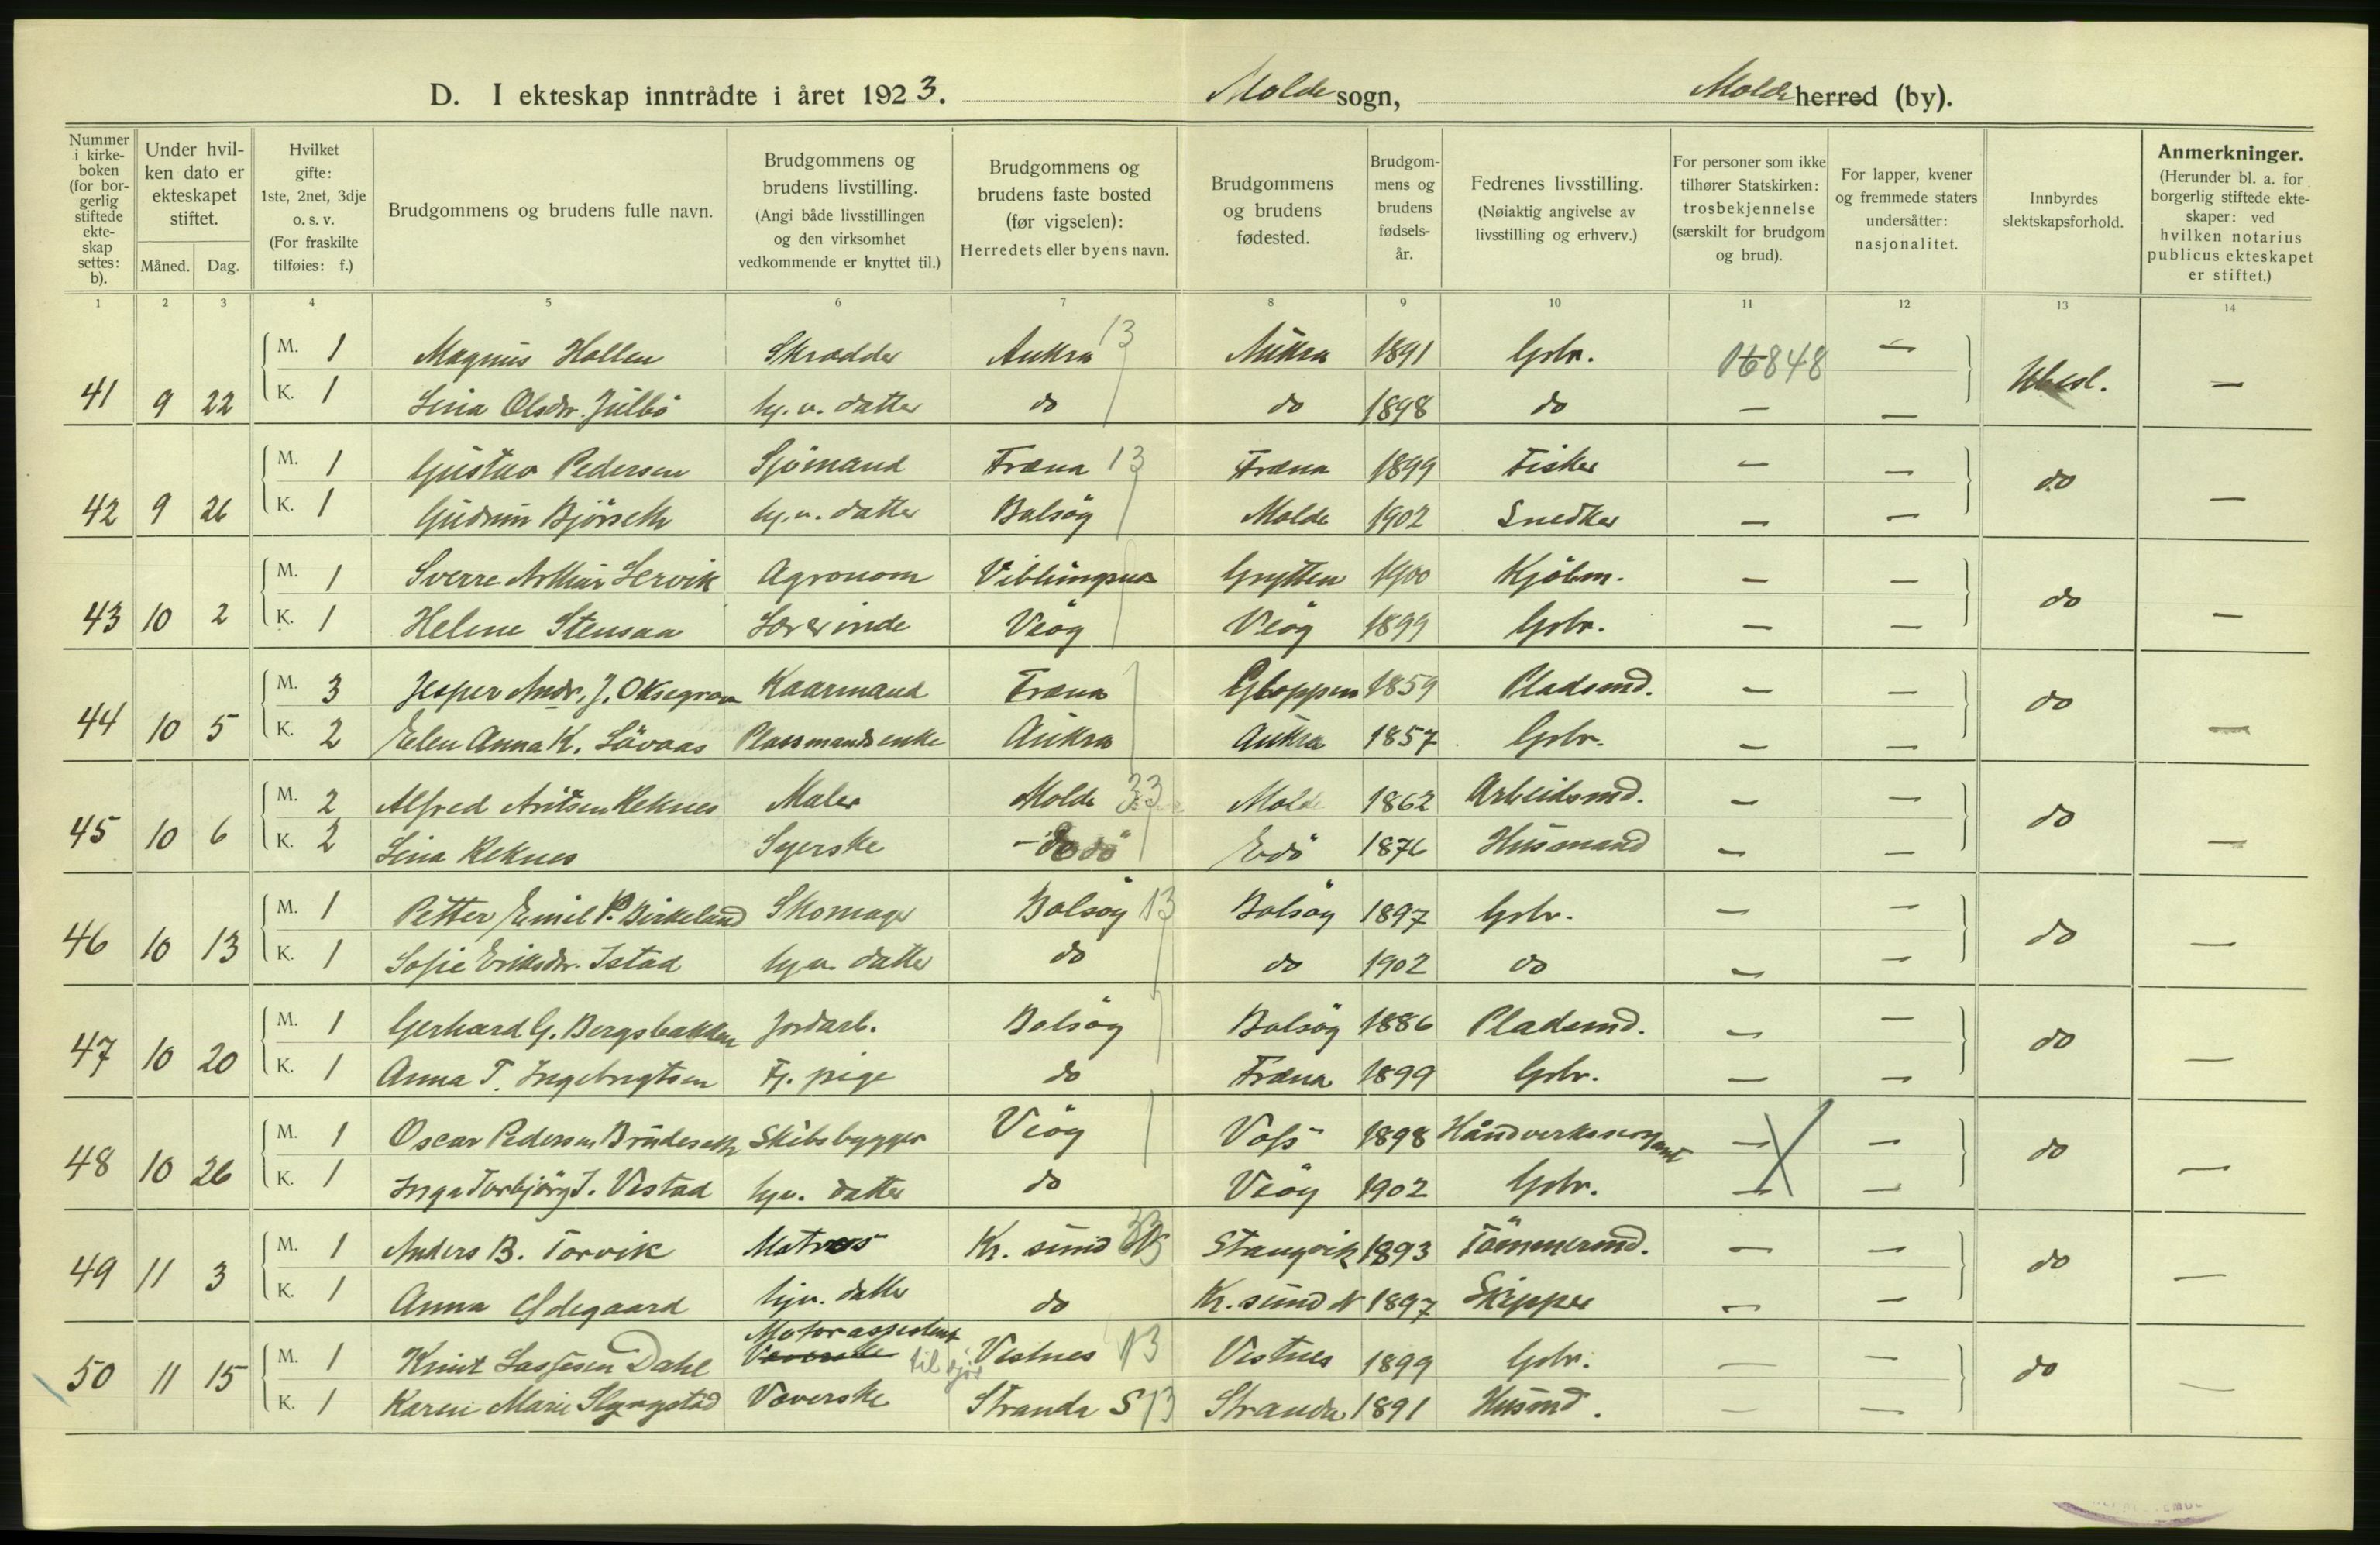 D. I ekteskap inntrådte i året 1923. Molde sogn, Molde herred (by).
Nummer i kirkeboken (for borgerlig stiftede ekteskap settes: b). Under hvilken dato er ekteskapet stiftet. Måned. Dag. Hvilket gifte: 1ste, 2net, 3dje o. s. v. (For fraskilte tilføies: f.) Brudgommens og brudens fulle navn. Brudgommens og brudens livstilling. (Angi både livsstillingen og den virksomhet vedkommende er knyttet til.) Brudgommens og brudens faste bosted (før vigselen): Herredets eller byens navn. Brudgommens og brudens fødested. Brudgommens og brudens fødsels-år. Fedrenes livsstilling. (Nøiaktig angivelse av livsstilling og erhverv.) For personer som ikke tilhører Statskirken: trosbekjennelse (særskilt for brudgom og brud). For lapper, kvener og fremmede staters undersåtter: nasjonalitet. Innbyrdes slektskapsforhold. Anmerkninger. (Herunder bl. a. for borgerlig stiftede ekteskaper: ved hvilken notarius publicus ekteskapet er stiftet.)
1 2 3 4 5 6 7 8 9 10 11 12 13 14
M. 1 Magnus Hollen Skrædder Aukra 13 Aukra 1891 Gbr. 16848 —
41 9 22 K. 1 Lina Olsdr. Julbö hj. v. datter do do 1898 do — — Ubesl. —
M. 1 Gustav Pedersen Sjömand Fræna 13 Fræna 1899 Fisker — —
42 9 26 K. 1 Gudrun Björseth hj. v. datter Bolsöy Molde 1902 Snedker — — do —
M. 1 Sverre Arthur Servik Agronom Grytten 1900 Kjöbm. — —
43 10 2 K. 1 Helene Stensaa Lærerinde Veöy Veöy 1899 Gbr. — — do —
M. 3 Jesper Andr. J. Kaarmand Fræna Gloppen 1859 Pladsmd. — —
44 10 5 K. 2 Elen Anna K. Lövaas Plassmandsenke Aukra Aukra 1857 Gbr. — — do —
M. 2 Alfred Reknes Maler Molde 33 Molde 1862 Arbeidsmd. — —
45 10 6 K. 2 Lina Reknes Syerske do Edö 1876 Husmand — — do —
M. 1 Petter Emil P. Birkeland Skomager Bolsöy 13 Bolsöy 1897 Gbr. — —
46 10 13 K. 1 Sofie Eriksdr. Istad hj. v. datter do do 1902 do — — do —
M. 1 Gerhard G. Bergsbakken Jordarb. Bolsöy Bolsöy 1886 Pladsmd. — —
47 10 20 K. 1 Anna T. Ingebrigtsen Tj. pige do Fræna 1899 Gbr. — — do —
M. 1 Oscar Pedersen Brudeseth Skibsbygger Veöy Voss 1898 Håndverkssersjant — —
48 10 26 K. 1 Inga Torbjörg J. Vestad hjv. datter do Veöy 1902 Gbr. — — do —
M. 1 Anders B. Torvik Matros Kr. sund Stangvik 1893 Tömmermd. — —
49 11 3 K. 1 Anna Ødegaard hjv. datter do Kr. sund N 1897 Skipper — — do —
Motorassistent
M. 1 Knut Lassesen Dahl Væverske til sjös Vestnes 13 Vestnes 1899 Gbr. — —
50 11 15 K. 1 Karen Marie Slyngstad Væverske Stranda S 13 Stranda 1891 Husmd. — — do —